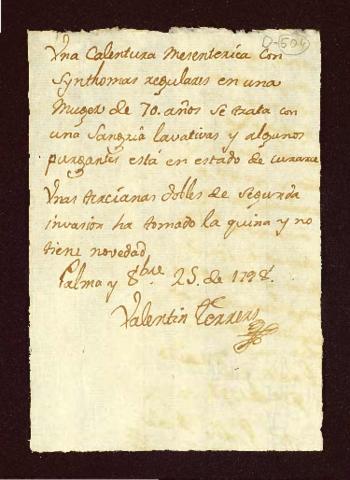 D-504
Vna Calentura Mesenterica con
Synthomas regulares en una
Muger de 70. años se trata con
una Sangria lavativas y algunos
purgantes está en estado de curarse
Vnas tercianas dobles de segunda
invasion ha tomado la quina y no
tiene novedad
Palma y 8bre 25. de 1798.
Valentin Terrers